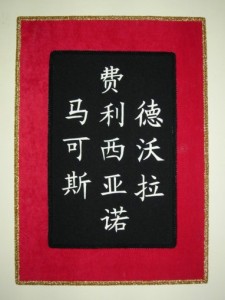 马可斯
费利西亚诺
德沃拉